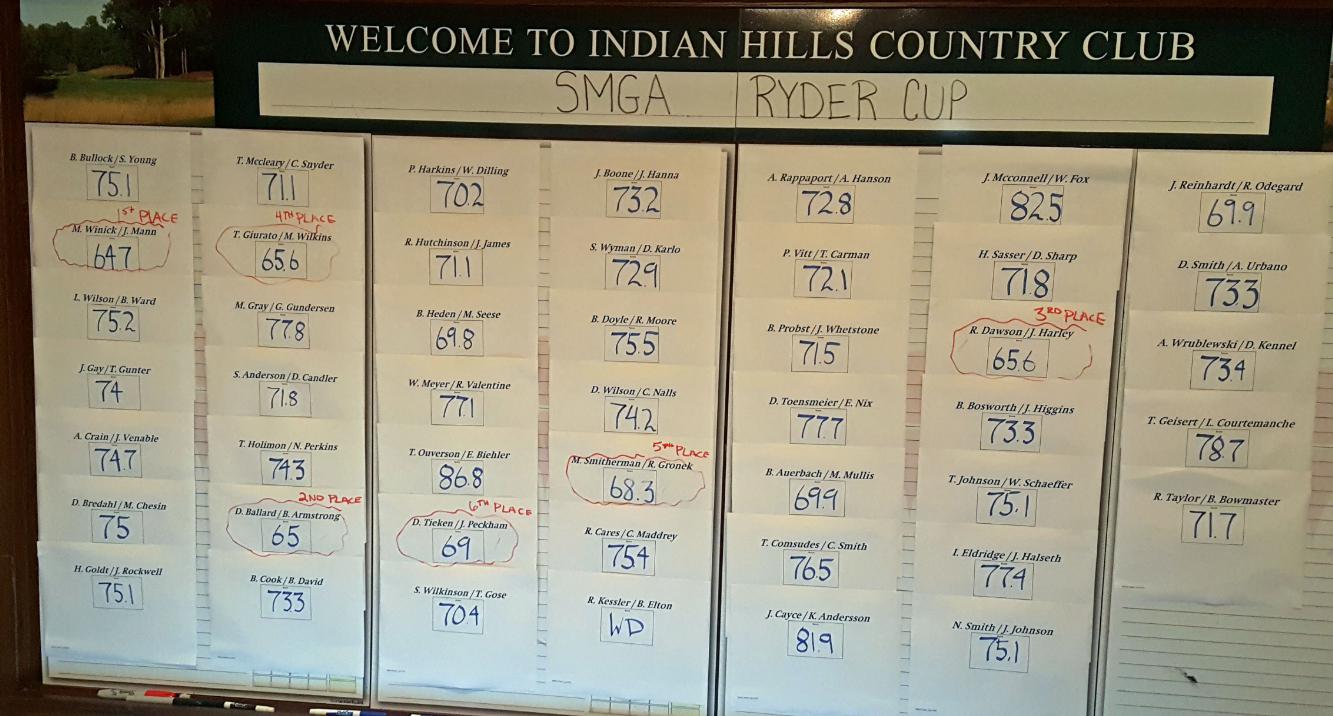 WELCOME TO INDIAN HILLS COUNTRY CLUB
SMGA RYDER CUP
B. Bullock/S. Young
75.1
1ST PLACE
M. Winick/J. Mann
64.7
L. Wilson/B. Ward
75.2
J. Gay/T. Gunter
74
A. Crain/J. Venable
74.7
D. Bredahl/M. Chesin
75
H. Goldt/J. Rockwell
75.1
T. Mccleary/C. Snyder
71.1
4TH PLACE
T. Giurato/M. Wilkins
65.6
M. Gray/G. Gundersen
77.8
S. Anderson/D. Candler
71.8
T. Holimon/N. Perkins
74.3
2ND PLACE
D. Ballard/B. Armstrong
65
B. Cook/B. David
73.3
P. Harkins/W. Dilling
70.2
R. Hutchinson/J. James
71.1
B. Heden/M. Seese
69.8
W. Meyer/R. Valentine
77.1
T. Ouverson/E. Biehler
86.8
6TH PLACE
D. Tieken/J. Peckham
69
S. Wilkinson/T. Gose
70.4
J. Boone/J. Hanna
73.2
S. Wyman/D. Karlo
72.9
B. Doyle/R. Moore
75.5
D. Wilson/C. Nalls
74.2
5TH PLACE
M. Smitherman/R. Gronek
68.3
R. Cares/C. Maddrey
75.4
R. Kessler/B. Elton
WD
A. Rappaport/A. Hanson
72.8
P. Vitt/T. Carman
72.1
B. Probst/J. Whetstone
71.5
D. Toensmeier/E. Nix
77.7
B. Auerbach/M. Mullis
69.9
T. Comsudes/C. Smith
76.5
J. Cayce/K. Andersson
81.9
J. Mcconnell/W. Fox
82.5
H. Sasser/D. Sharp
71.8
3RD PLACE
R. Dawson/J. Harley
65.6
B. Bosworth/J. Higgins
73.3
T. Johnson/W. Schaeffer
75.1
I. Eldridge/J. Halseth
77.4
N. Smith/J. Johnson
75.1
J. Reinhardt/R. Odegard
69.9
D. Smith/A. Urbano
73.3
A. Wrublewski/D. Kennel
73.4
T. Geisert/L. Courtemanche
78.7
R. Taylor/B. Bowmaster
71.7